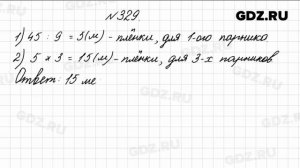 GDZ.RU
№329
1) 45 : 9 = 5(м) - плёнки, для 1-ого парника
2) 5 × 3 = 15(м) - плёнки, для 3-х парников
Ответ: 15 ме
GDZ.RU